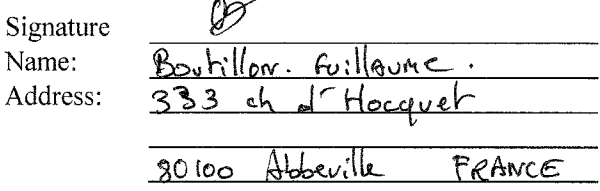 Signature
Name: Boutillon. Guillaume.
Address: 333 ch d'Hocquet
80100 Abbeville FRANCE